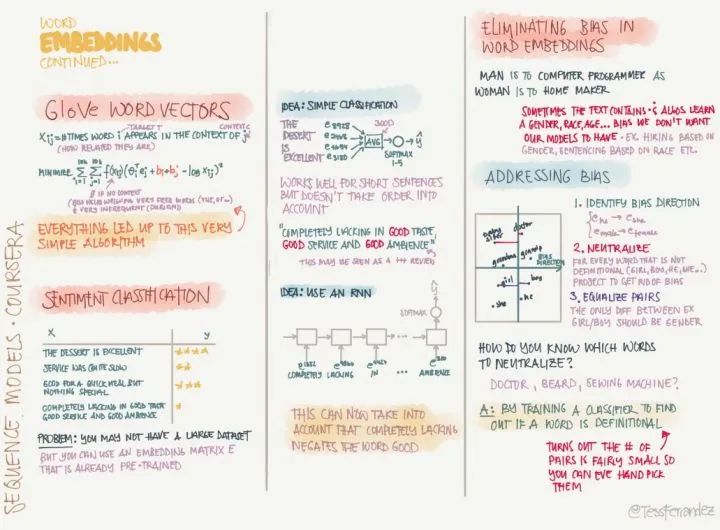 WORD
EMBEDDINGS
CONTINUED...
GloVe WORD VECTORS
Xij = #TIMES WORD i APPEARS IN THE CONTEXT OF j
TARGET
CONTEXT
(HOW RELATED THEY ARE)
MINIMIZE
10k
10k
i=1
j=1
f(Xij)(θiᵀej + bi + bj' - log Xij)²
IF NO CONTEXT
& VERY INFREQUENT (DURIAN)
EVERYTHING LED UP TO THIS VERY
SIMPLE ALGORITHM
SENTIMENT CLASSIFICATION
X
Y
THE DESSERT IS EXCELLENT
SERVICE WAS QUITE SLOW
GOOD FOR A QUICK MEAL BUT
NOTHING SPECIAL
COMPLETELY LACKING IN GOOD TASTE
GOOD SERVICE AND GOOD AMBIENCE
PROBLEM: YOU MAY NOT HAVE A LARGE DATASET
BUT YOU CAN USE AN EMBEDDING MATRIX E
THAT IS ALREADY PRE-TRAINED
SEQUENCE MODELS · COURSERA
IDEA: SIMPLE CLASSIFICATION
THE
DESSERT
IS
EXCELLENT
e8928
e2468
e4694
e3180
300D
AVG
ŷ
SOFTMAX
1-5
WORKS WELL FOR SHORT SENTENCES
BUT DOESN'T TAKE ORDER INTO
ACCOUNT
"COMPLETELY LACKING IN GOOD TASTE,
GOOD SERVICE AND GOOD AMBIENCE"
THIS MAY BE SEEN AS A +++ REVIEW
IDEA: USE AN RNN
ŷ
SOFTMAX
e1852
e4966
e4427
...
e330
COMPLETELY
LACKING
IN
...
AMBIENCE
THIS CAN NOW TAKE INTO
ACCOUNT THAT COMPLETELY LACKING
NEGATES THE WORD GOOD
ELIMINATING BIAS IN
WORD EMBEDDINGS
MAN IS TO COMPUTER PROGRAMMER AS
WOMAN IS TO HOME MAKER
SOMETIMES THE TEXT CONTAINS & ALGOS LEARN
A GENDER, RACE, AGE... BIAS WE DON'T WANT
OUR MODELS TO HAVE · EX. HIRING BASED ON
GENDER, SENTENCING BASED ON RACE ETC.
ADDRESSING BIAS
baby
sitter
doctor
grandma
grandpa
BIAS
DIRECTION
girl
boy
she
he
1. IDENTIFY BIAS DIRECTION
{ehe → eshe
emale → efemale
2. NEUTRALIZE
FOR EVERY WORD THAT IS NOT
DEFINITIONAL (GIRL, BOY, HE, WE...)
PROJECT TO GET RID OF BIAS
3. EQUALIZE PAIRS
THE ONLY DIFF BETWEEN EX
GIRL/BOY SHOULD BE GENDER
HOW DO YOU KNOW WHICH WORDS
TO NEUTRALIZE?
DOCTOR, BEARD, SEWING MACHINE?
A: BY TRAINING A CLASSIFIER TO FIND
OUT IF A WORD IS DEFINITIONAL
TURNS OUT THE # OF
PAIRS IS FAIRLY SMALL SO
YOU CAN EVE HAND PICK
THEM
@TessFerrandez